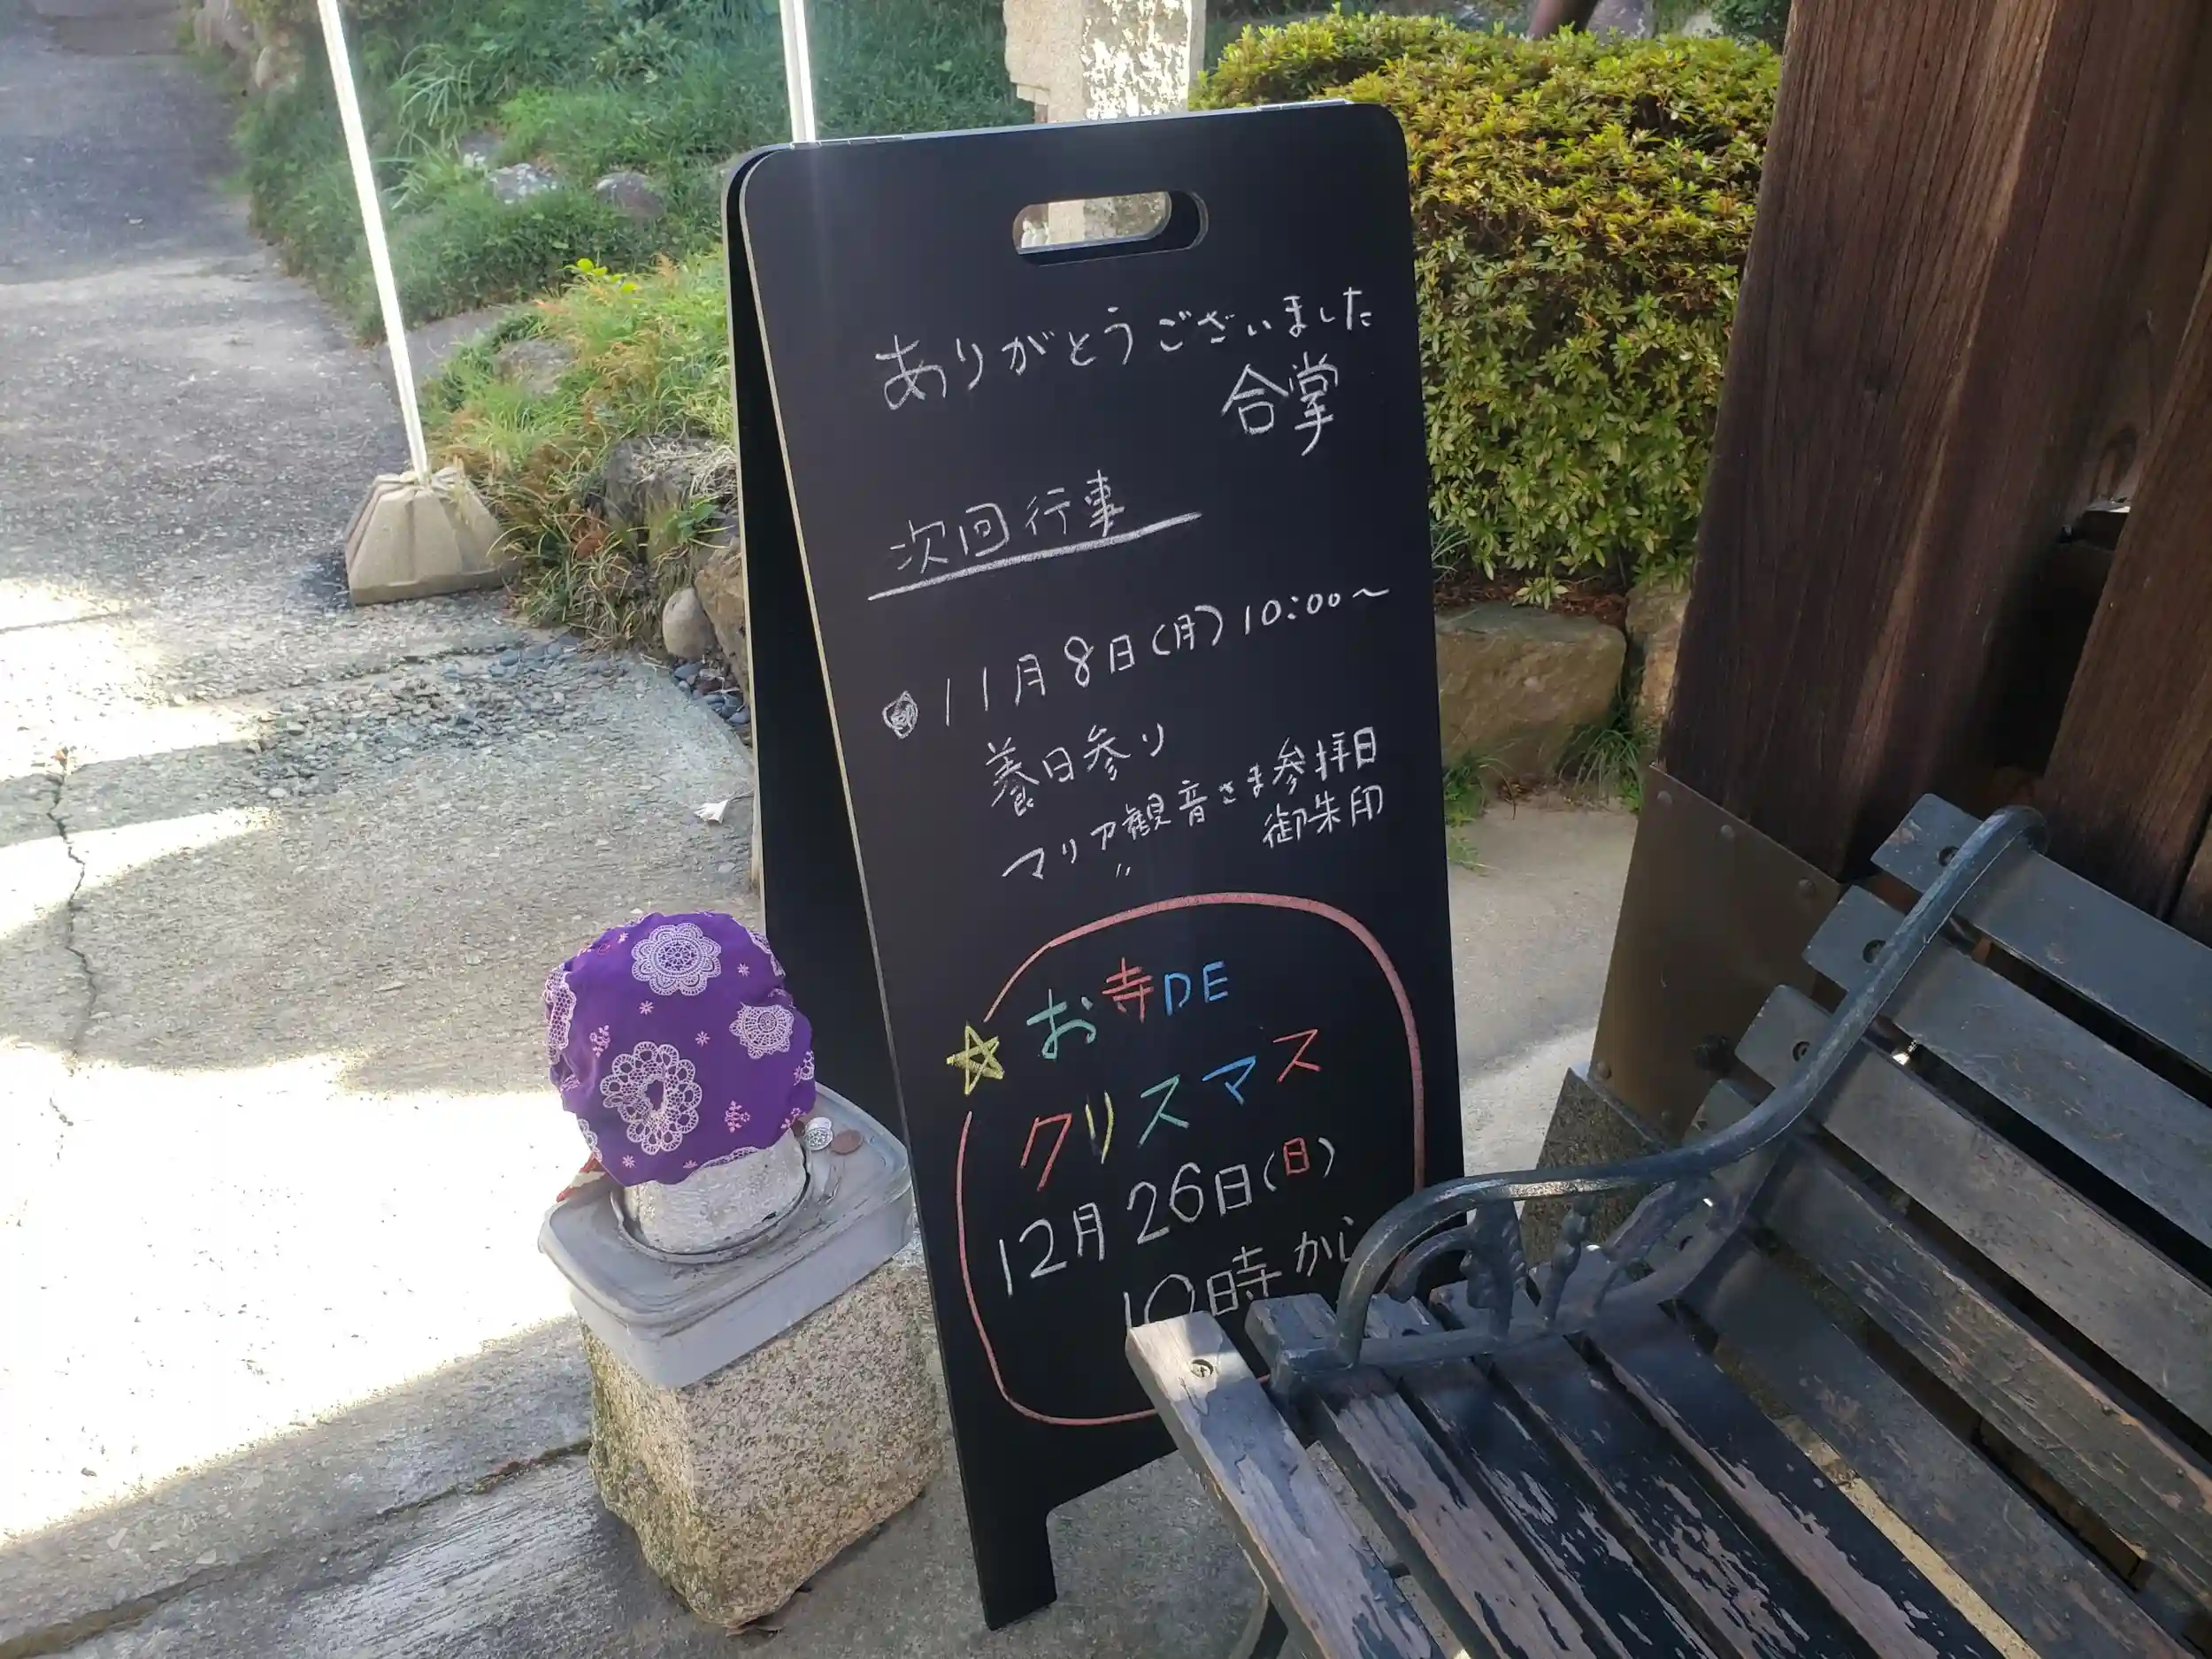 ありがとうございました
合掌
次回行事
11月8日(月)10:00〜
養日参り
マリア観音さま参拝日
〃 御朱印
お寺DE
クリスマス
12月26日(日)
10時から